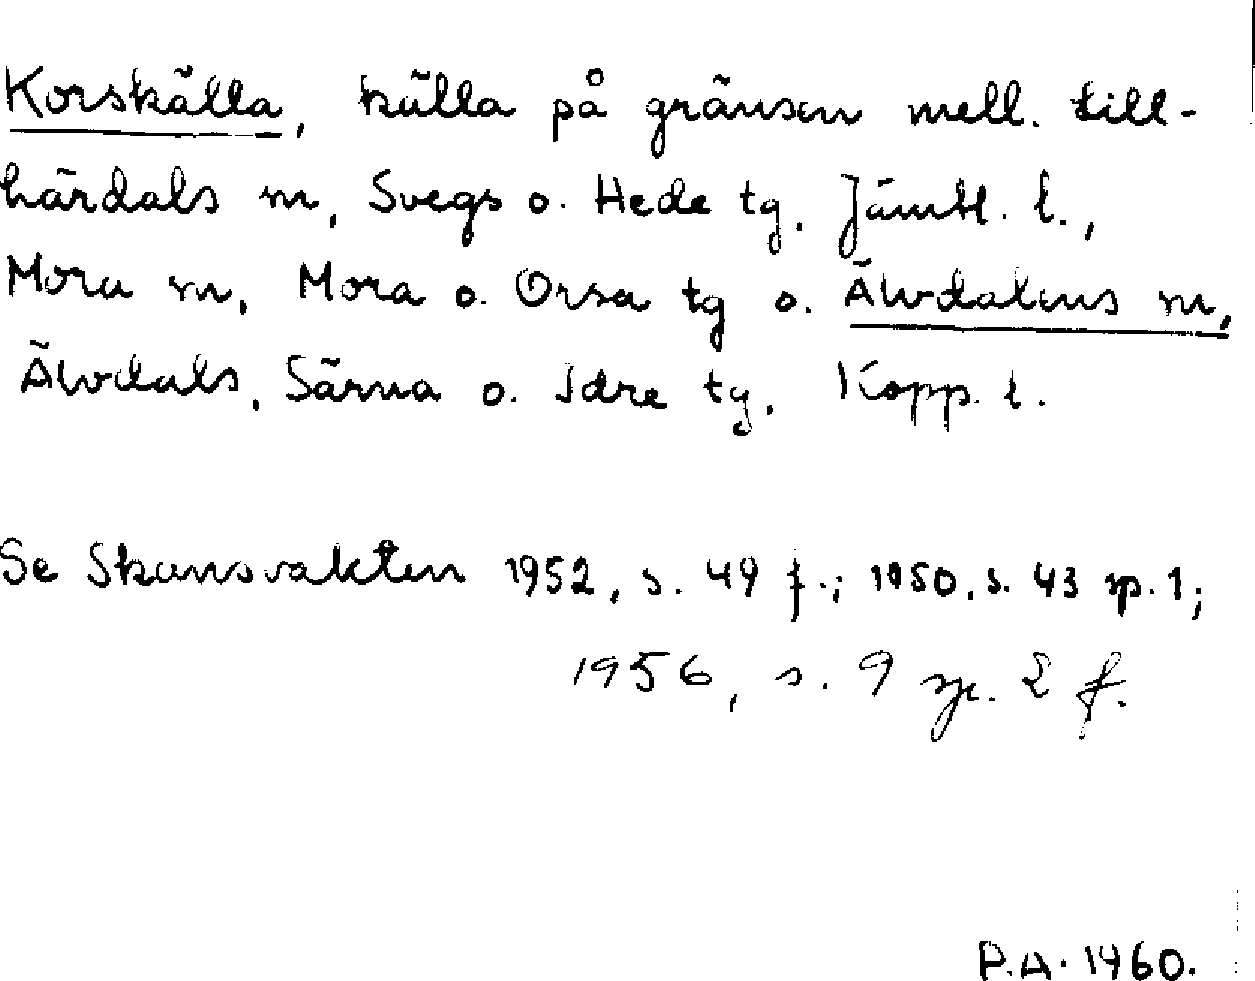 Korskälla, källa på gränsen mell. Lill-
härdals sn, Svegs o. Hede tg. Jämtl. l.,
Mora sn, Mora o. Orsa tg o. Älvdalens sn,
Älvdals, Särna o. Idre tg. Kopp. l.
Se Skansvakten 1952, s. 49 f.; 1950, s. 43 sp. 1;
1956, s. 9 sp. 2 f.
P.A. 1460.